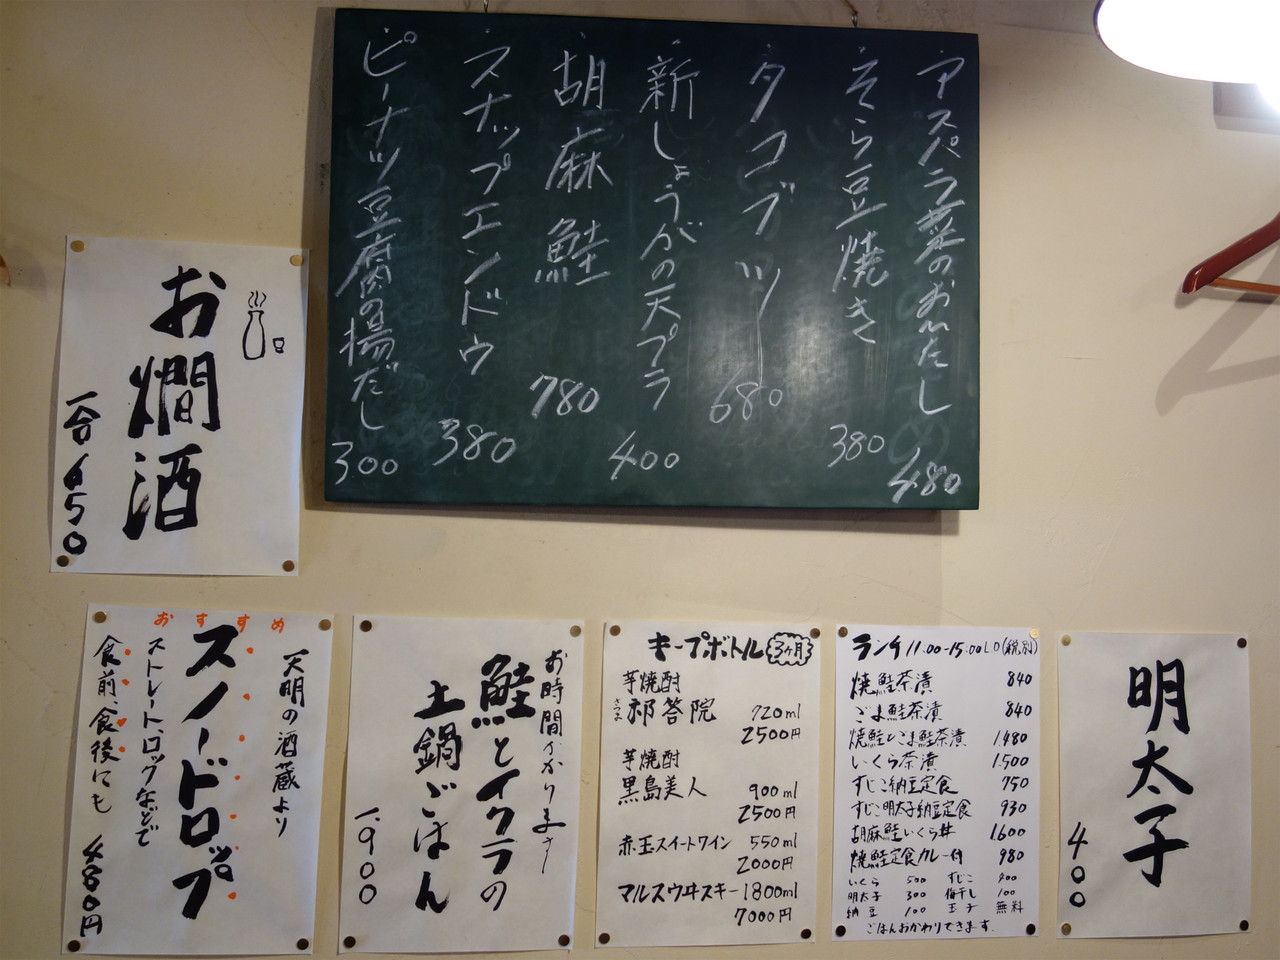 アスパラ菜のおひたし 480
そら豆焼き 380
タコブツ 680
新しょうがの天プラ 400
胡麻鮭 780
スナップエンドウ 380
ピーナツ豆腐の揚だし 300
お燗酒
一合 650
おすすめ
天明の酒蔵より
スノードロップ
ストレート、ロックなどで
食前、食後にも 480円
お時間かかりまさー
鮭とイクラの
土鍋ごはん
1,900
キープボトル 3ヶ月
芋焼酎
さつま 祁答院 720ml
2500円
芋焼酎
黒島美人 900ml
2500円
赤玉スイートワイン 550ml
2000円
マルスウヰスキー 1800ml
7000円
ランチ 11:00-15:00LO(税別)
焼鮭茶漬 840
ごま鮭茶漬 840
焼鮭とごま鮭茶漬 1480
いくら茶漬 1500
すじこ納豆定食 750
すじこ明太子納豆定食 930
胡麻鮭いくら丼 1600
焼鮭定食カレー付 980
いくら 500 すじこ 400
明太子 300 梅干し 100
納豆 100 玉子 無料
ごはんおかわりできます.
明太子
400